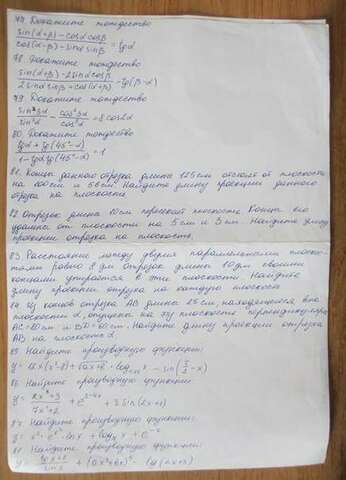 77. Докажите тождество
sin(α+β) - cosα cosβ / cos(α-β) - sinα sinβ = tgα
78. Докажите тождество
sin(α+β) - 2sinα cosβ / 2sinα sinβ + cos(α+β) = tg(β-α)
79. Докажите тождество
sin²3α / sin²α - cos²3α / cos²α = 8cos2α
80. Докажите тождество
tgα + tg(45°-α) / 1 - tgα tg(45°-α) = 1
81. Концы данного отрезка длиной 125 см отстоят от плоскости
на 100 см и 56 см. Найдите длину проекции данного
отрезка на плоскость.
82. Отрезок длиной 10 см пересекает плоскость. Концы его
удалены от плоскости на 5 см и 3 см. Найдите длину
проекции отрезка на плоскость.
83. Расстояние между двумя параллельными плоскос-
тями равно 8 дм. Отрезок длины 10 дм своими
концами упирается в эти плоскости. Найдите
длину проекции отрезка на каждую плоскость
84. Из концов отрезка AB длиной 25 см, находящегося вне
плоскости α, опущены на эту плоскость перпендикуляры
AC и BD Найдите длину проекции отрезка
AB на плоскость α.
85 Найдите производную функции:
86 Найдите производную функции
87. Найдите производную функции:
y =
88. Найдите производную функции: